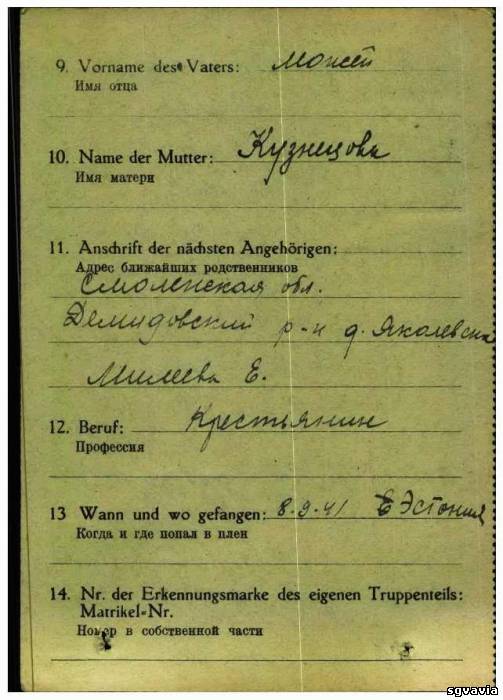 9. Vorname des Vaters: Мосей
Имя отца
10. Name der Mutter: Кузнецова
Имя матери
11. Anschrift der nächsten Angehörigen:
Адрес ближайших родственников
Смоленская обл.
Демидовский р-н д. Яколевска
Милеева Е.
12. Beruf: Крестьянин
Профессия
13 Wann und wo gefangen: 8.9.41 Эстония
Когда и где попал в плен
14. Nr. der Erkennungsmarke des eigenen Truppenteils:
Matrikel-Nr.
Номер в собственной части
sgvavia